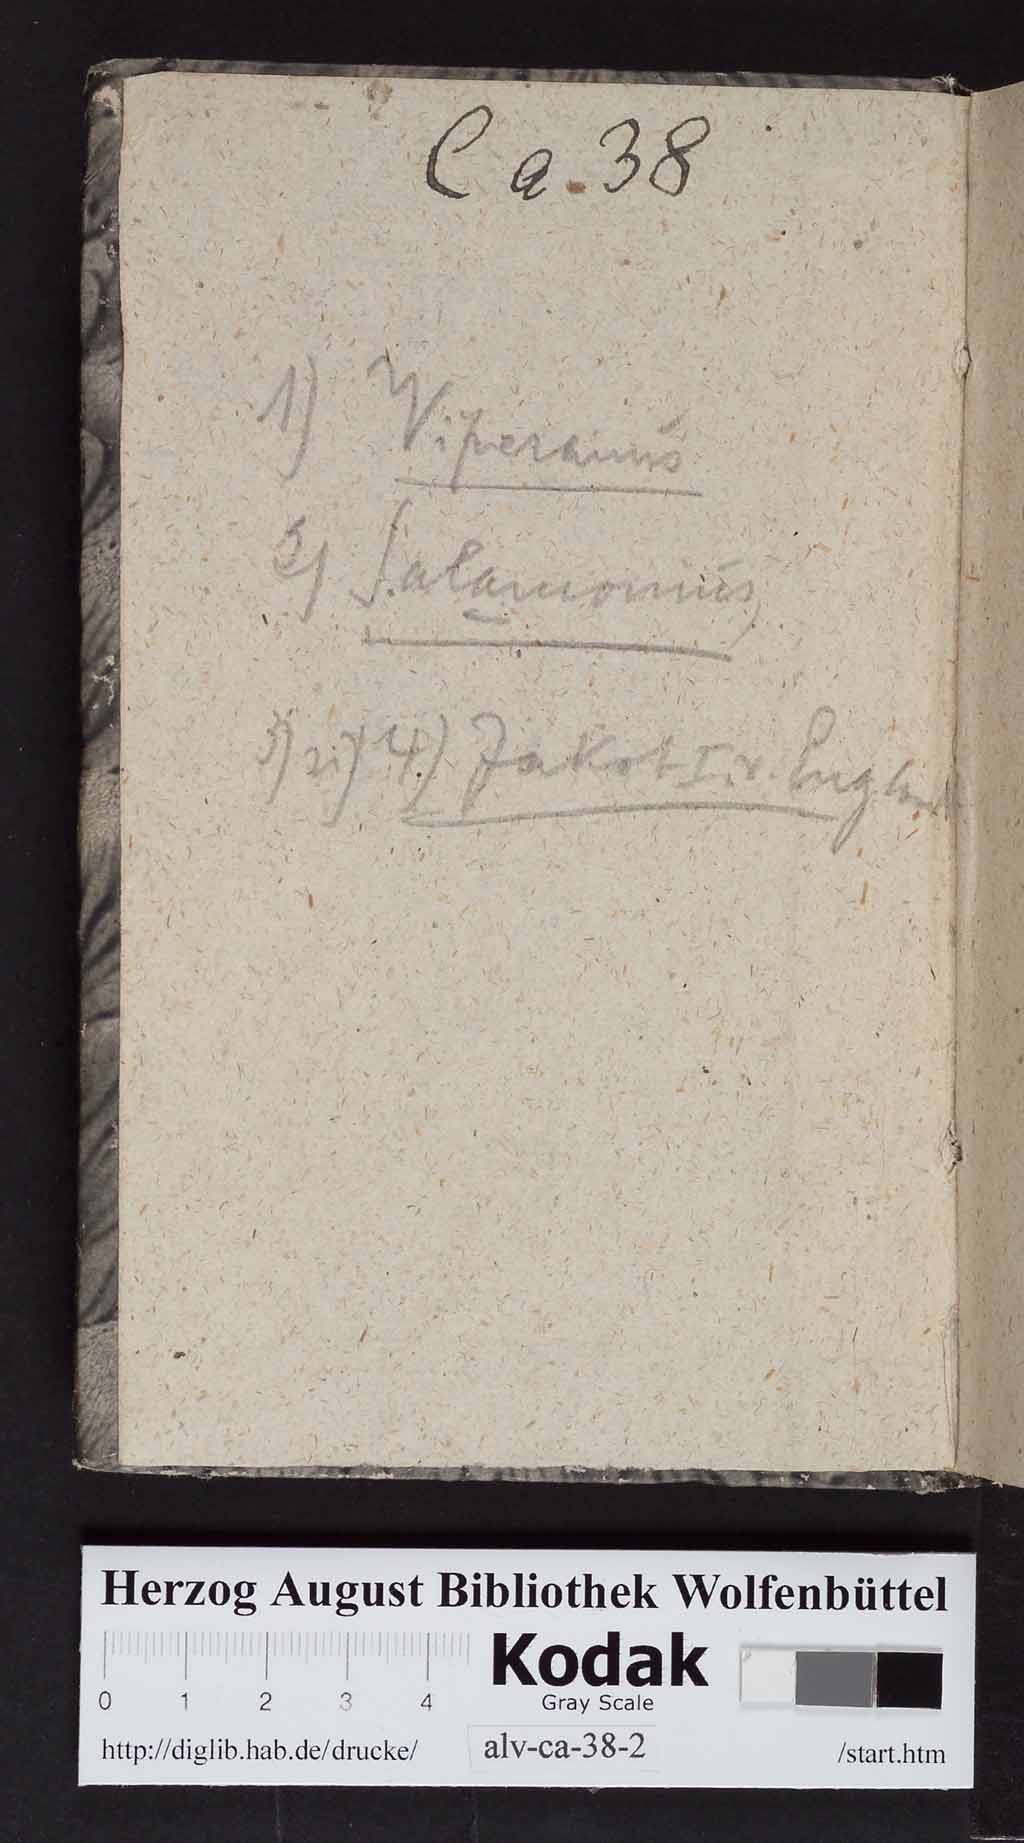 Ca. 38
1) Viperanus
2) Salamonius
3) 4) Jakob I. v. England
Herzog August Bibliothek Wolfenbüttel
Kodak
Gray Scale
0 1 2 3 4
http://diglib.hab.de/drucke/ alv-ca-38-2 /start.htm